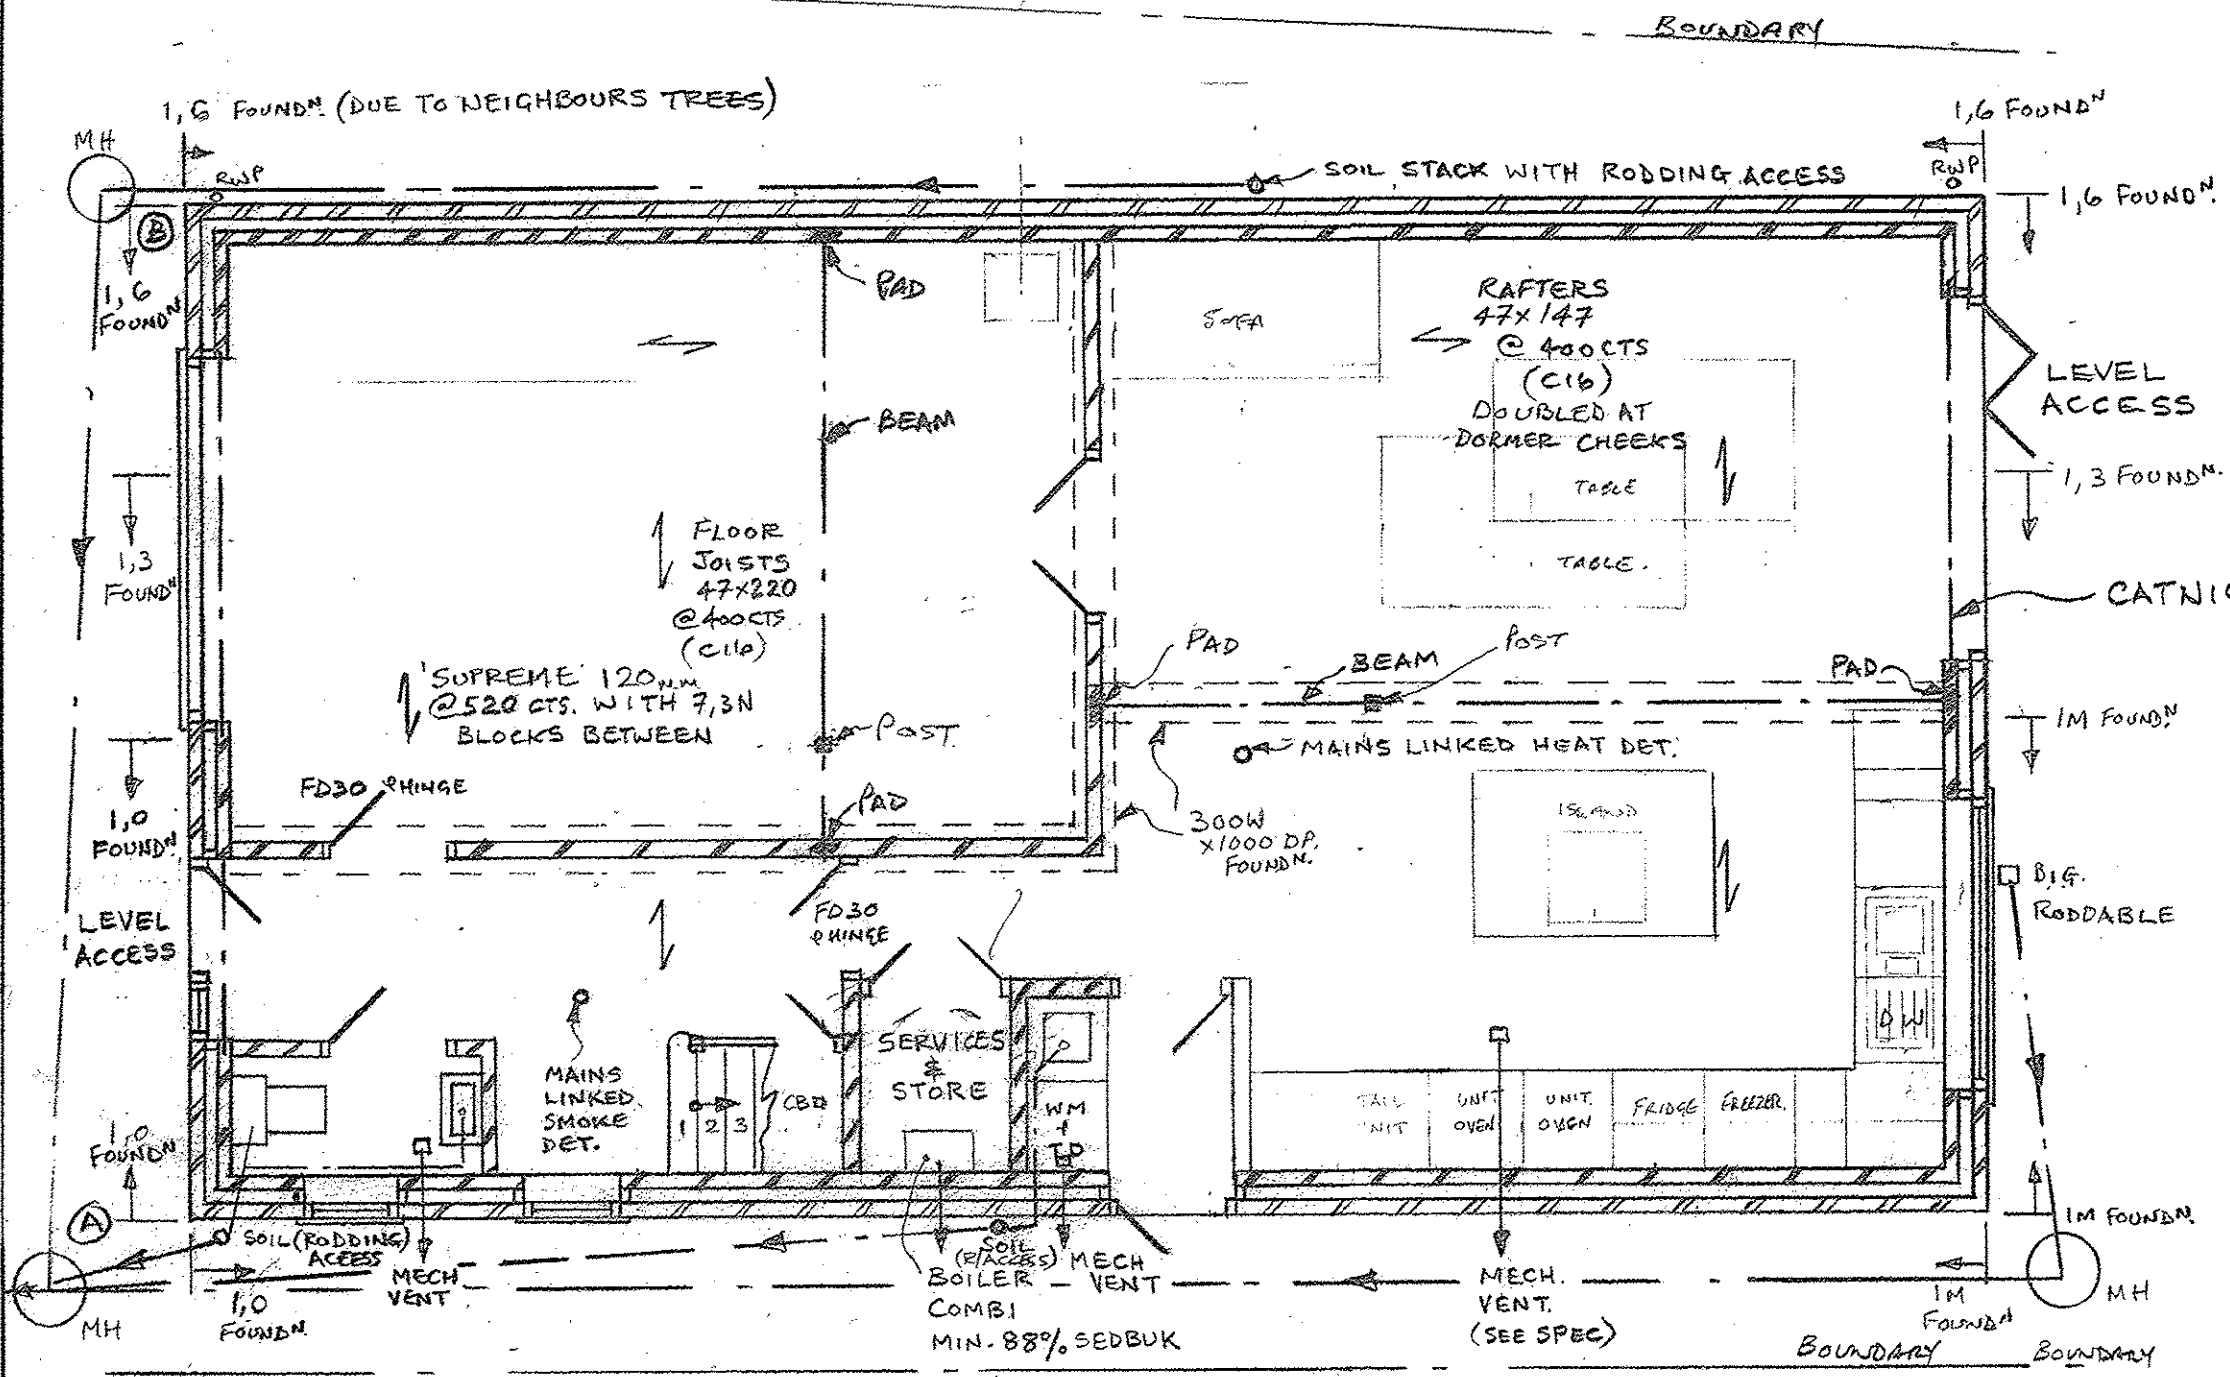 BOUNDARY
1,6 FOUNDN. (DUE TO NEIGHBOURS TREES)
1,6 FOUNDN
MH
RWP
SOIL STACK WITH RODDING ACCESS
RWP
1,6 FOUNDN.
B
1,6
FOUNDN
PAD
SOFA
RAFTERS
47x147
@ 400CTS
(C16)
DOUBLED AT
DORMER CHEEKS
LEVEL
ACCESS
BEAM
TABLE
1,3 FOUNDN.
1,3
FOUNDN
FLOOR
JOISTS
47x220
@400CTS
(C16)
TABLE.
CATNIC
'SUPREME' 120MM
@520 CTS. WITH 7,3N
BLOCKS BETWEEN
PAD
BEAM
POST
PAD
POST
1M FOUNDN.
MAINS LINKED HEAT DET.
FD30 & HINGE
1,0
FOUNDN.
PAD
300W
x1000 DP.
FOUNDN.
ISLAND
B.I.G.
RODDABLE
LEVEL
ACCESS
FD30
& HINGE
SERVICES
&
STORE
DW
MAINS
LINKED
SMOKE
DET.
1 2 3
CBD
WM
+
TD
TALL
UNIT
UNIT
OVEN
UNIT.
OVEN
FRIDGE
FREEZER.
1,0
FOUNDN
A
SOIL (RODDING)
ACCESS
MECH
VENT
SOIL
(R/ACCESS)
MECH
VENT
BOILER
COMBI
MIN. 88% SEDBUK
MECH.
VENT.
(SEE SPEC)
1M FOUNDN.
1M
FOUNDN
MH
1,0
FOUNDN.
MH
BOUNDARY
BOUNDARY